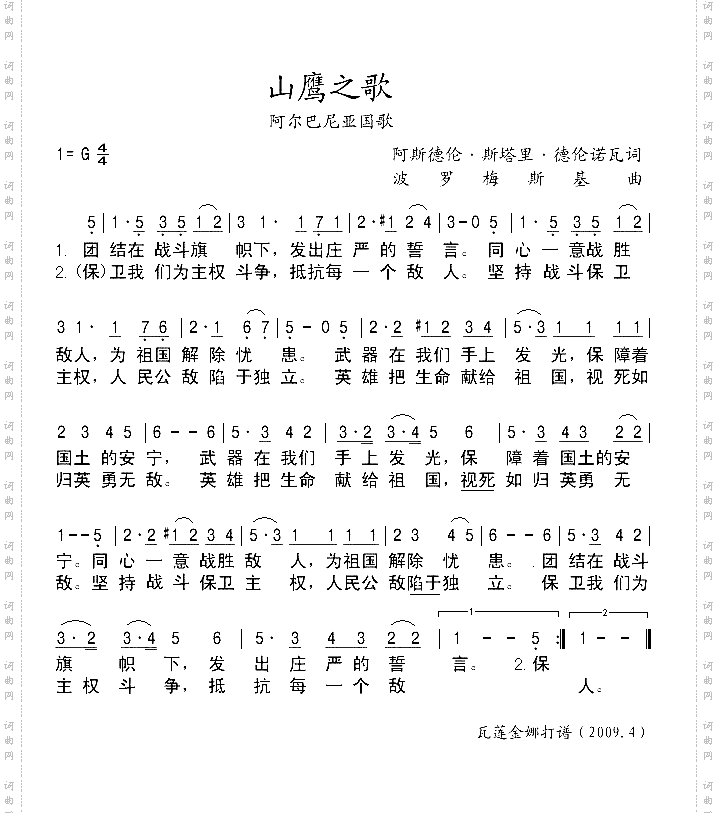 山鹰之歌
阿尔巴尼亚国歌
1= G 4/4
阿斯德伦·斯塔里·德伦诺瓦词
波罗梅斯基曲
5 | 1· 5 3 5 1 2 | 3 1 · 1 7 1 | 2·#1 2 4 | 3-0 5 | 1· 5 3 5 1 2 |
1. 团 结在 战斗旗 帜下，发出庄 严的 誓 言。 同 心 一 意战 胜
2.(保)卫我 们为主权 斗争，抵抗每 一 个 敌 人。 坚 持 战 斗保 卫
3 1 · 1 7 6 | 2·1 6 7 | 5 - 0 5 | 2·2 #1 2 3 4 | 5·3 1 1 1 1 |
敌人，为 祖国 解 除 忧 患。 武 器 在 我们 手上 发 光，保 障着
主权，人 民公 敌陷 于独 立。 英雄 把 生命 献给 祖 国，视 死如
2 3 4 5 | 6 - - 6 | 5· 3 4 2 | 3·2 3·4 5 6 | 5· 3 4 3 2 2 |
国土 的安 宁， 武 器 在 我们 手 上 发 光，保 障 着 国土 的安
归英 勇无 敌。 英 雄 把 生命 献 给 祖 国，视死 如 归 英勇 无
1 - - 5 | 2·2 #1 2 3 4 | 5·3 1 1 1 1 | 2 3 4 5 | 6 - - 6 | 5·3 4 2 |
宁。同 心 一 意 战胜 敌 人，为祖国 解除 忧 患。 团 结在 战斗
敌。坚 持 战 斗 保卫 主 权，人民公 敌陷于独 立。 保 卫我 们为
3·2 3·4 5 6 | 5· 3 4 3 2 2 | 1 - - 5 :‖ 1 - - ‖
1 2
旗 帜 下，发 出 庄 严 的 誓 言。 2.保
主 权 斗 争，抵 抗 每 一 个 敌 人。
瓦莲金娜打谱（2009.4）
词曲网